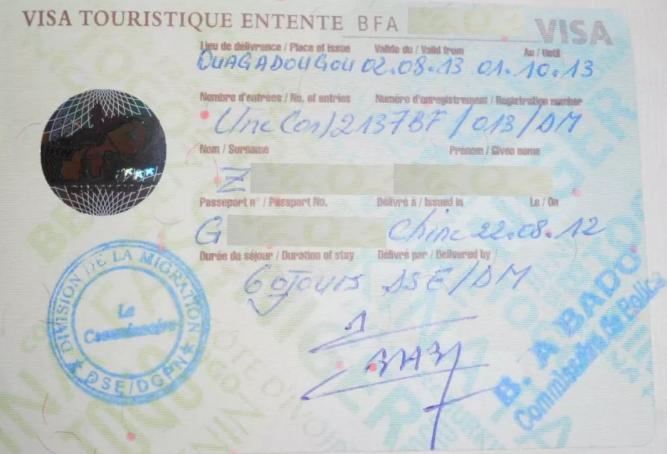 VISA TOURISTIQUE ENTENTE BFA
VISA
Lieu de délivrance / Place of issue Valide du / Valid from Au / Until
OUAGADOUGOU 02.08.13 01.10.13
Nombre d'entrées / No. of entries Numéro d'enregistrement / Registration number
Une (01) 2137BF/013/DM
Nom / Surname Prénom / Given name
Z
Passeport n° / Passport No. Délivré à / Issued in Le / On
G Chine 22.08.12
Durée du séjour / Duration of stay Délivré par / Delivered by
60 Jours DSE/DM
DIVISION DE LA MIGRATION
Le
Commissaire
DSE/DGPN
B. A BADO
Commissaire de Police